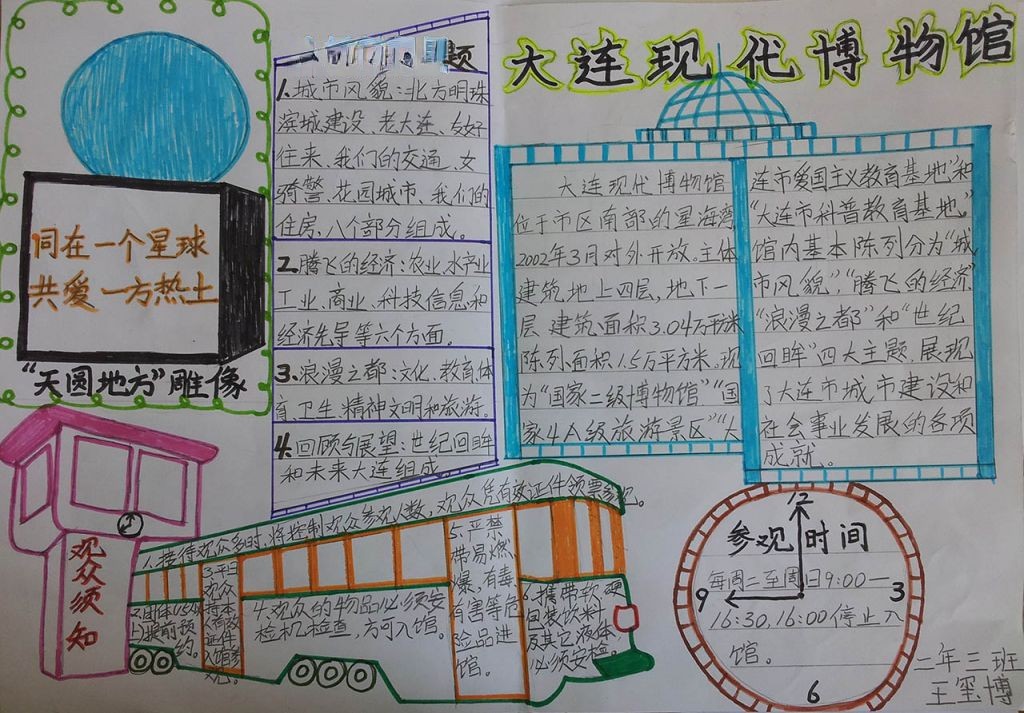 大连现代博物馆
大连现代博物馆
位于市区南部的星海湾
2002年3月对外开放。主体
建筑地上四层,地下一
层 建筑面积3.04万平方米
陈列面积1.5万平方米.现
为“国家二级博物馆”“国
家4A级旅游景区”“大
连市爱国主义教育基地”和
“大连市科普教育基地。”
馆内基本陈列分为“城
市风貌”,“腾飞的经济”
“浪漫之都”和“世纪
回眸”四大主题.展现
了大连市城市建设和
社会事业发展的各项
成就。
题
1.城市风貌:北方明珠
滨城建设、老大连、友好
往来、我们的交通、女
骑警、花园城市、我们的
住房、八个部分组成。
2.腾飞的经济:农业、水产业
工业、商业、科技信息和
经济先导等六个方面。
3.浪漫之都:文化、教育体
育、卫生、精神文明和旅游。
4.回顾与展望:世纪回眸
和未来大连组成
同在一个星球
共爱一方热土
“天圆地方”雕像
观众须知
1.接待观众多时,将控制观众参观人数,观众凭有效证件领票参观。
2.团体15人以
上提前预
约。
3.平日
观众
持本
人有效
证件
入馆参
观。
4.观众的物品必须安
检机检查,方可入馆。
5.严禁
带易燃
爆,有毒
有害等危
险品进
馆。
6.携带软硬
包装饮料
及其它液体
必须安检。
12
参观时间
每周二至周日9:00—
9
3
16:30,16:00停止入
馆。
6
二年三班
王玺博